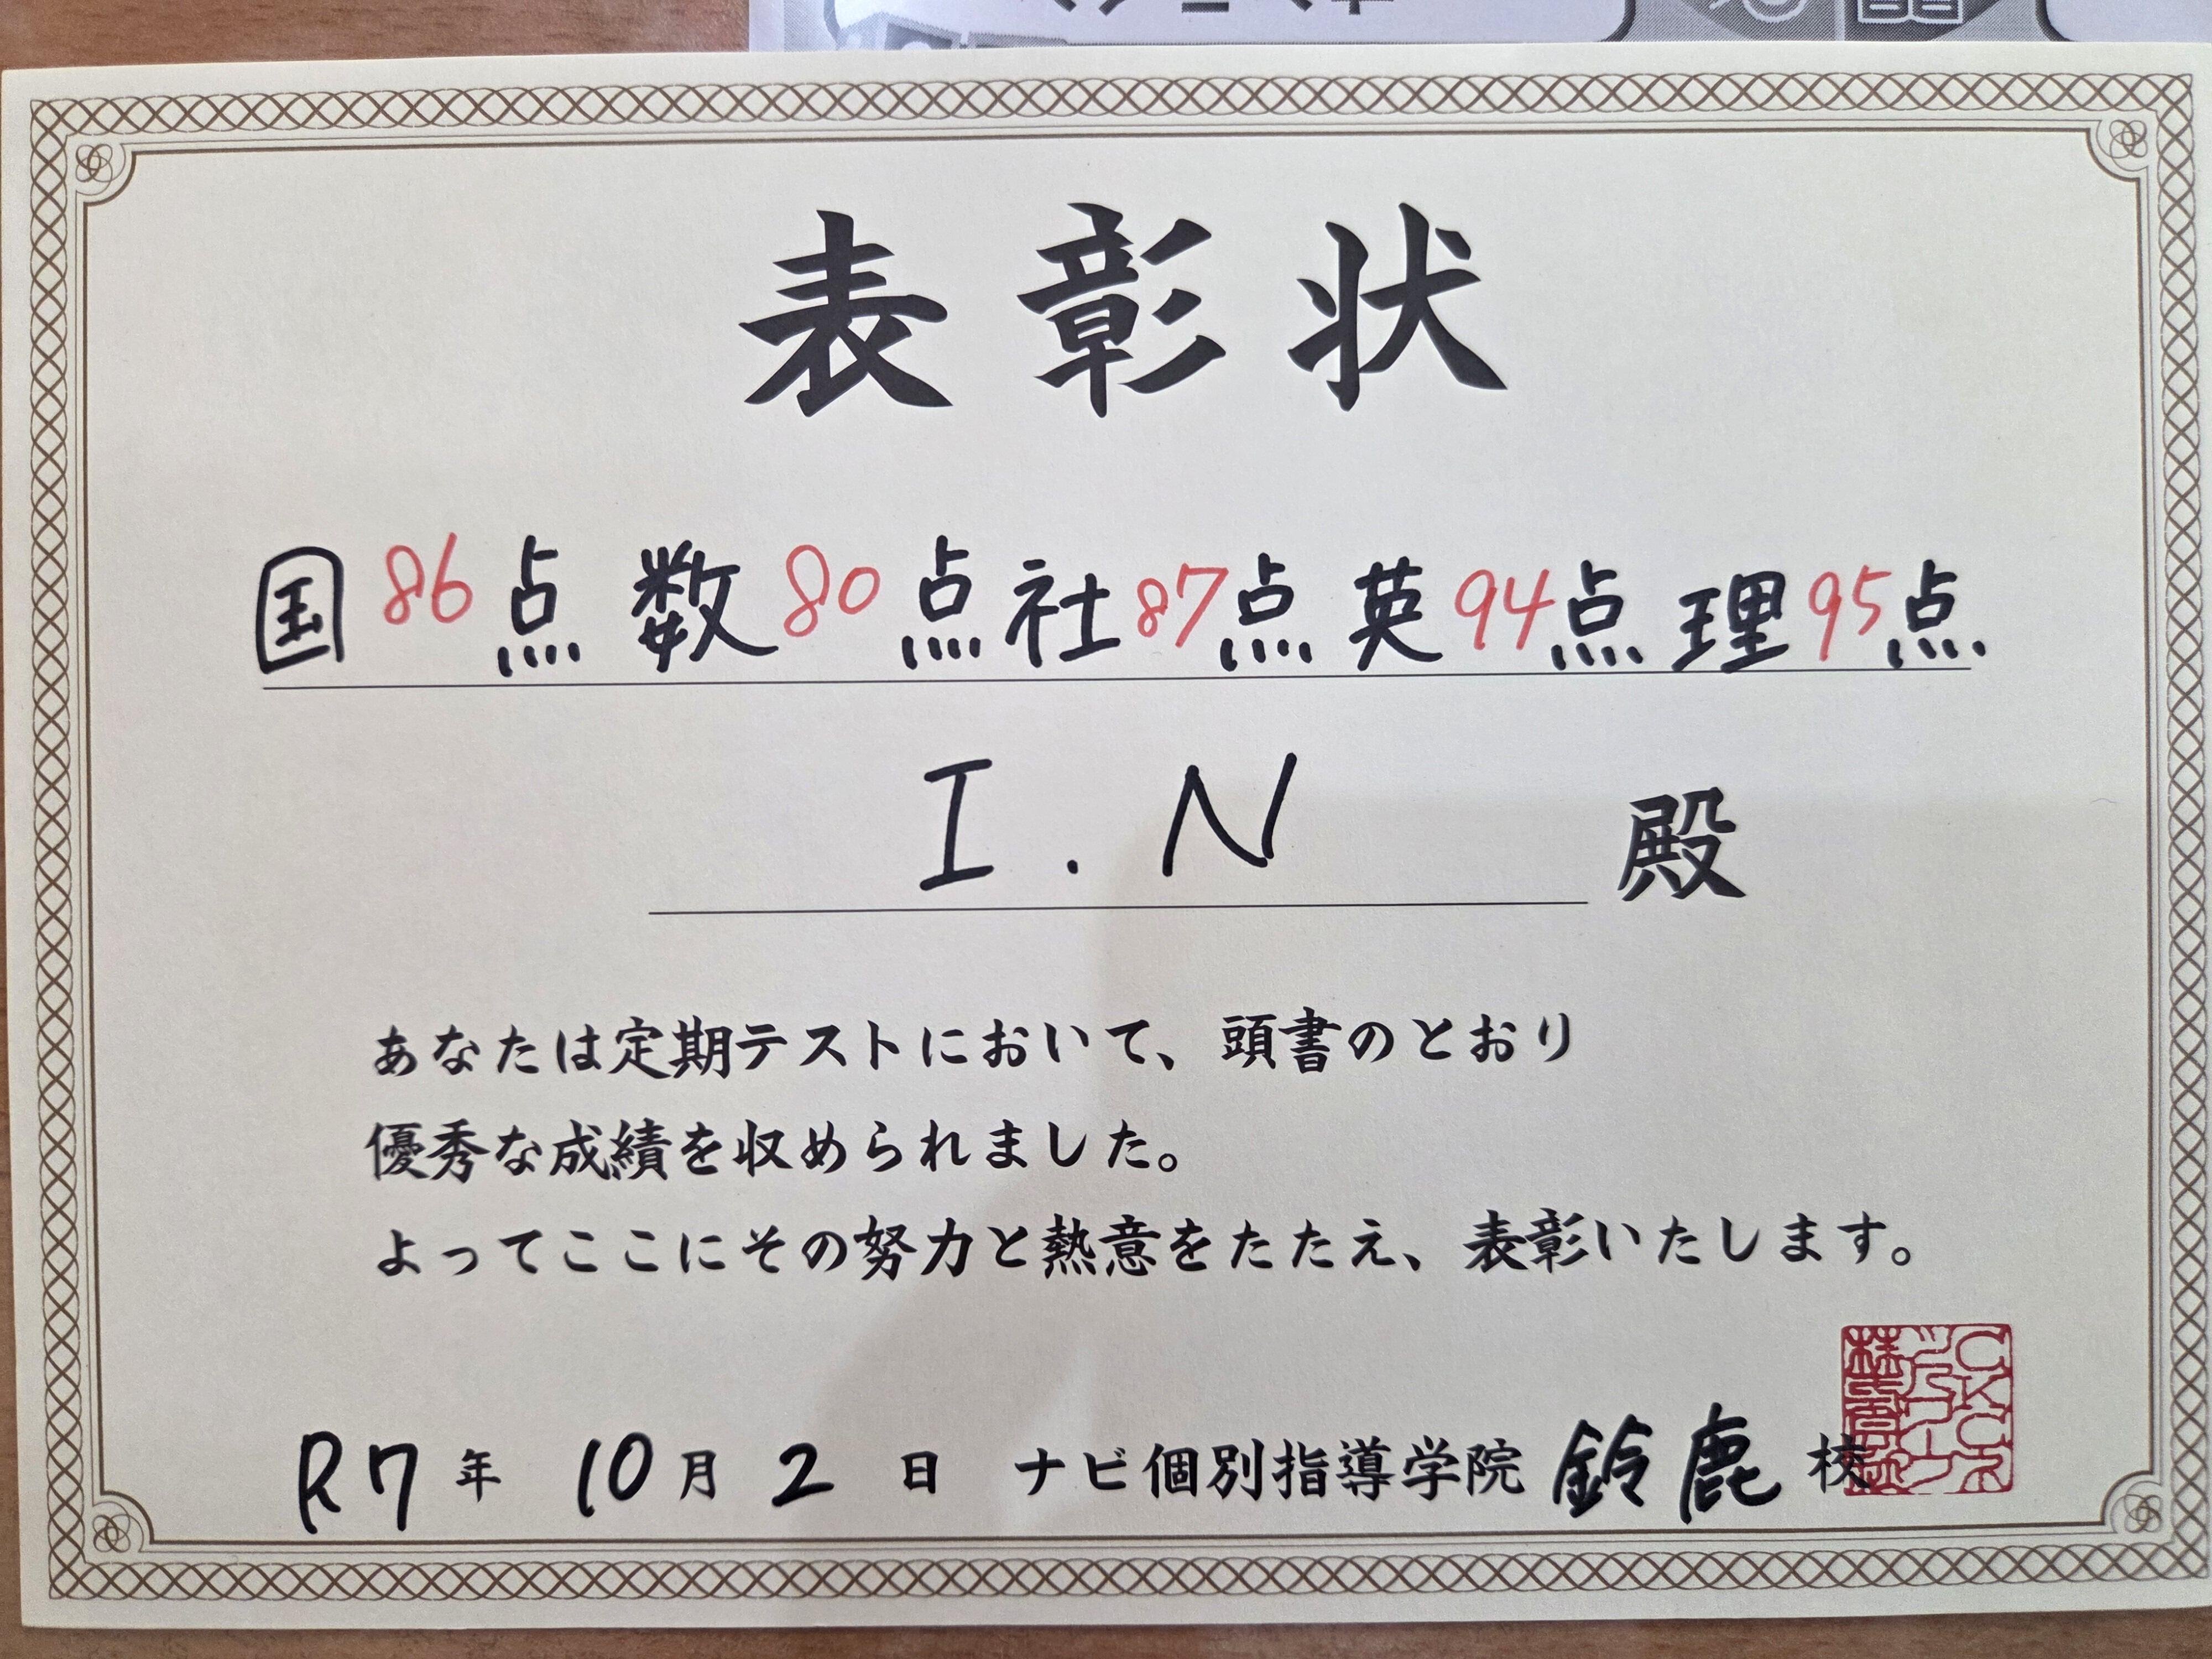 表彰状
国86点 数80点 社87点 英94点 理95点
I.N 殿
あなたは定期テストにおいて、頭書のとおり
優秀な成績を収められました。
よってここにその努力と熱意をたたえ、表彰いたします。
R7年 10月2日 ナビ個別指導学院 鈴鹿校